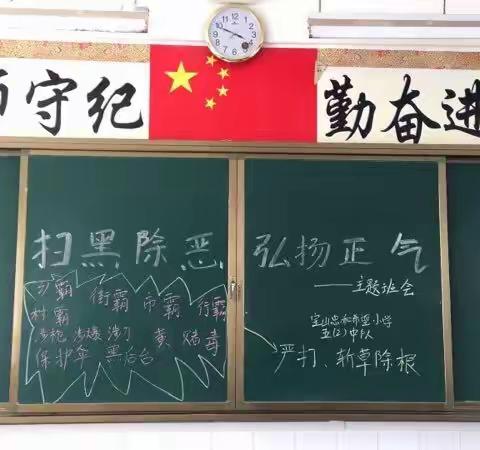 守纪
勤奋进
扫黑除恶
乡霸 街霸 市霸 行霸
村霸
涉枪 涉爆 涉刀 黄、赌毒
保护伞 黑后台
弘扬正气
——主题班会
小学
五(2)中队
严打、斩草除根